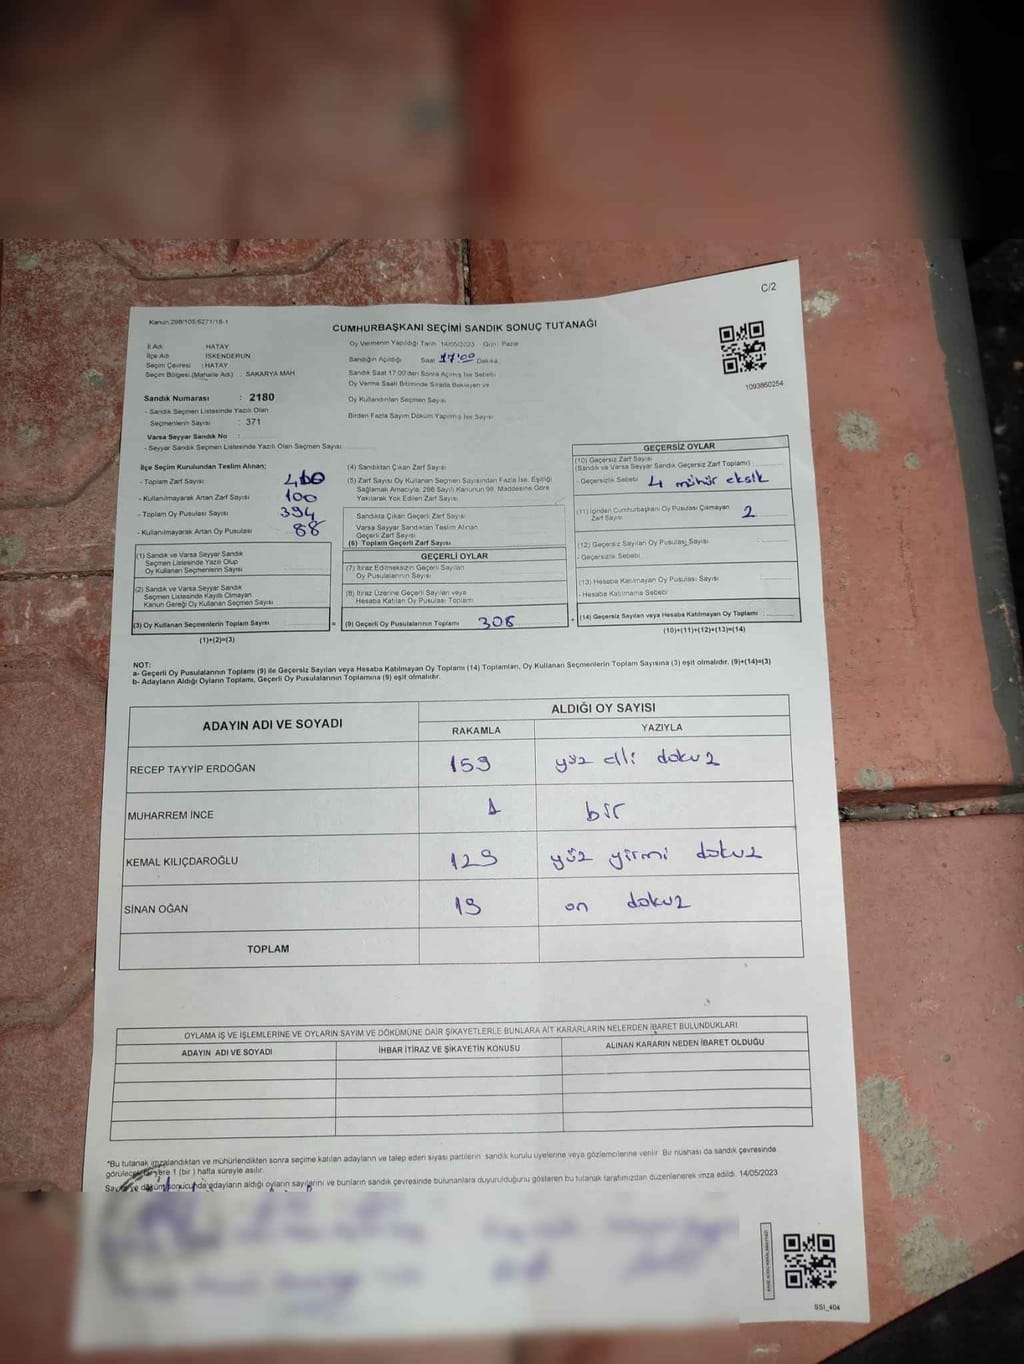 C/2
Kanun:298/105,6271/18-1
CUMHURBAŞKANI SEÇİMİ SANDIK SONUÇ TUTANAĞI
İl Adı : HATAY
İlçe Adı : İSKENDERUN
Seçim Çevresi : HATAY
Seçim Bölgesi (Mahalle Adı) : SAKARYA MAH
Oy Vermenin Yapıldığı Tarih 14/05/2023 Gün : Pazar
Sandığın Açıldığı Saat 17:00 Dakika
Sandık Saat 17:00'den Sonra Açılmış İse Sebebi
Oy Verme Saati Bitiminde Sırada Bekleyen ve
Oy Kullandırılan Seçmen Sayısı
Birden Fazla Sayım Döküm Yapılmış İse Sayısı
1093860254
Sandık Numarası : 2180
- Sandık Seçmen Listesinde Yazılı Olan
Seçmenlerin Sayısı : 371
Varsa Seyyar Sandık No :
- Seyyar Sandık Seçmen Listesinde Yazılı Olan Seçmen Sayısı
İlçe Seçim Kurulundan Teslim Alınan;
- Toplam Zarf Sayısı 400
- Kullanılmayarak Artan Zarf Sayısı 100
- Toplam Oy Pusulası Sayısı 394
- Kullanılmayarak Artan Oy Pusulası 88
(1) Sandık ve Varsa Seyyar Sandık
Seçmen Listesinde Yazılı Olup
Oy Kullanan Seçmenlerin Sayısı
(2) Sandık ve Varsa Seyyar Sandık
Seçmen Listesinde Kayıtlı Olmayan
Kanun Gereği Oy Kullanan Seçmen Sayısı
(3) Oy Kullanan Seçmenlerin Toplam Sayısı =
(1)+(2)=(3)
(4) Sandıktan Çıkan Zarf Sayısı
(5) Zarf Sayısı Oy Kullanan Seçmen Sayısından Fazla İse, Eşitliği
Sağlamak Amacıyla, 298 Sayılı Kanunun 98. Maddesine Göre
Yakılarak Yok Edilen Zarf Sayısı
Sandıkta Çıkan Geçerli Zarf Sayısı
Varsa Seyyar Sandıktan Teslim Alınan
Geçerli Zarf Sayısı
(6) Toplam Geçerli Zarf Sayısı
GEÇERLİ OYLAR
(7) İtiraz Edilmeksizin Geçerli Sayılan
Oy Pusulalarının Sayısı
(8) İtiraz Üzerine Geçerli Sayılan veya
Hesaba Katılan Oy Pusulası Toplamı
(9) Geçerli Oy Pusulalarının Toplamı 308 +
GEÇERSİZ OYLAR
(10) Geçersiz Zarf Sayısı
(Sandık ve Varsa Seyyar Sandık Geçersiz Zarf Toplamı)
- Geçersizlik Sebebi 4 mühür eksik
(11) İçinden Cumhurbaşkanı Oy Pusulası Çıkmayan
Zarf Sayısı 2
(12) Geçersiz Sayılan Oy Pusulası Sayısı
- Geçersizlik Sebebi
(13) Hesaba Katılmayan Oy Pusulası Sayısı
- Hesaba Katılmama Sebebi
(14) Geçersiz Sayılan veya Hesaba Katılmayan Oy Toplamı :
(10)+(11)+(12)+(13)=(14)
NOT:
a- Geçerli Oy Pusulalarının Toplamı (9) ile Geçersiz Sayılan veya Hesaba Katılmayan Oy Toplamı (14) Toplamları, Oy Kullanan Seçmenlerin Toplam Sayısına (3) eşit olmalıdır. (9)+(14)=(3)
b- Adayların Aldığı Oyların Toplamı, Geçerli Oy Pusulalarının Toplamına (9) eşit olmalıdır.
ADAYIN ADI VE SOYADI
ALDIĞI OY SAYISI
RAKAMLA YAZIYLA
RECEP TAYYİP ERDOĞAN 159 yüz elli dokuz
MUHARREM İNCE 1 bir
KEMAL KILIÇDAROĞLU 129 yüz yirmi dokuz
SİNAN OĞAN 19 on dokuz
TOPLAM
OYLAMA İŞ VE İŞLEMLERİNE VE OYLARIN SAYIM VE DÖKÜMÜNE DAİR ŞİKAYETLERLE BUNLARA AİT KARARLARIN NELERDEN İBARET BULUNDUKLARI
ADAYIN ADI VE SOYADI İHBAR İTİRAZ VE ŞİKAYETİN KONUSU ALINAN KARARIN NEDEN İBARET OLDUĞU
*Bu tutanak imzalandıktan ve mühürlendikten sonra seçime katılan adayların ve talep eden siyasi partilerin sandık kurulu üyelerine veya gözlemcilerine verilir. Bir nüshası da sandık çevresinde
görülecek bir yere 1 (bir) hafta süreyle asılır.
Sayım ve döküm sonucunda adayların aldığı oyların sayılarını ve bunların sandık çevresinde bulunanlara duyurulduğunu gösteren bu tutanak tarafımızdan düzenlenerek imza edildi. 14/05/2023
SSI_404